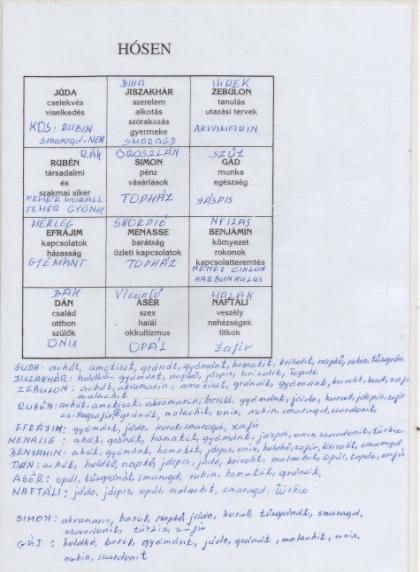 HÓSEN
BIKA IKREK
JÚDA JISZAKHÁR ZEBULON
cselekvés szerelem tanulás
viselkedés alkotás utazási tervek
szórakozás
KOS: RUBIN gyermeke AKVAMARIN
smaragd: NEM SMARAGD
RÁK OROSZLÁN SZŰZ
RUBÉN SIMON GÁD
társadalmi pénz munka
és vásárlások egészség
szakmai siker
FEHÉR KORALL TOPHÁZ JÁSPIS
FEHÉR GYÖNGY
MÉRLEG SKORPIÓ NYILAS
EFRÁJIM MENASSE BENJÁMIN
kapcsolatok barátság környezet
házasság üzleti kapcsolatok rokonok
kapcsolatteremtés
GYÉMÁNT TOPHÁZ NEMES CIRKON
KARBUNKULUS
BAK Vízöntő HALAK
DÁN ÁSER NAFTALI
család szex veszély
otthon halál nehézségek
szülők okkultizmus titkok
ONIX OPÁL Zafír
JUDA: achát, ametiszt, gránát, gyémánt, hematit, krizolit, napkő, rubin, türgránát
JISZAKHÁR: holdkő, gyémánt, napkő, jáspis, krizolit, topáz
ZEBULON: achát, akvamarin, ametiszt, gránát, gyémánt,
malachit
RUBÉN: achát, ametiszt, akvamarin, berill, gyémánt, jáde, korall, jáspis, zafír
gránát, malachit, onix, rubin, smaragd, szardonit,
EFRÁJIM: gyémánt, jáde, korall, smaragd, zafír
MENASSE: achát, gránát, hematit, gyémánt, jáspis, onix, szardonit, türkiz
BENJAMIN: achát, gyémánt, hematit, jáspis, onix, holdkő, zafír, krizolit, smaragd
DÁN: achát, holdkő, napkő, jáspis, jáde, krizolit, malachit, opál, topáz, zafír
ÁSER: opál, türgránát, smaragd, rubin, hematit, gránát,
NAFTALI: jáde, jáspis, opál, malachit, smaragd, türkiz
SIMON: akvamarin, berill, napkő, jáde, korall, türgránát, smaragd,
szardonit, türkiz, zafír
GÁD: holdkő, berill, gyémánt, jáde, gránát, malachit, onix,
rubin, szardonit